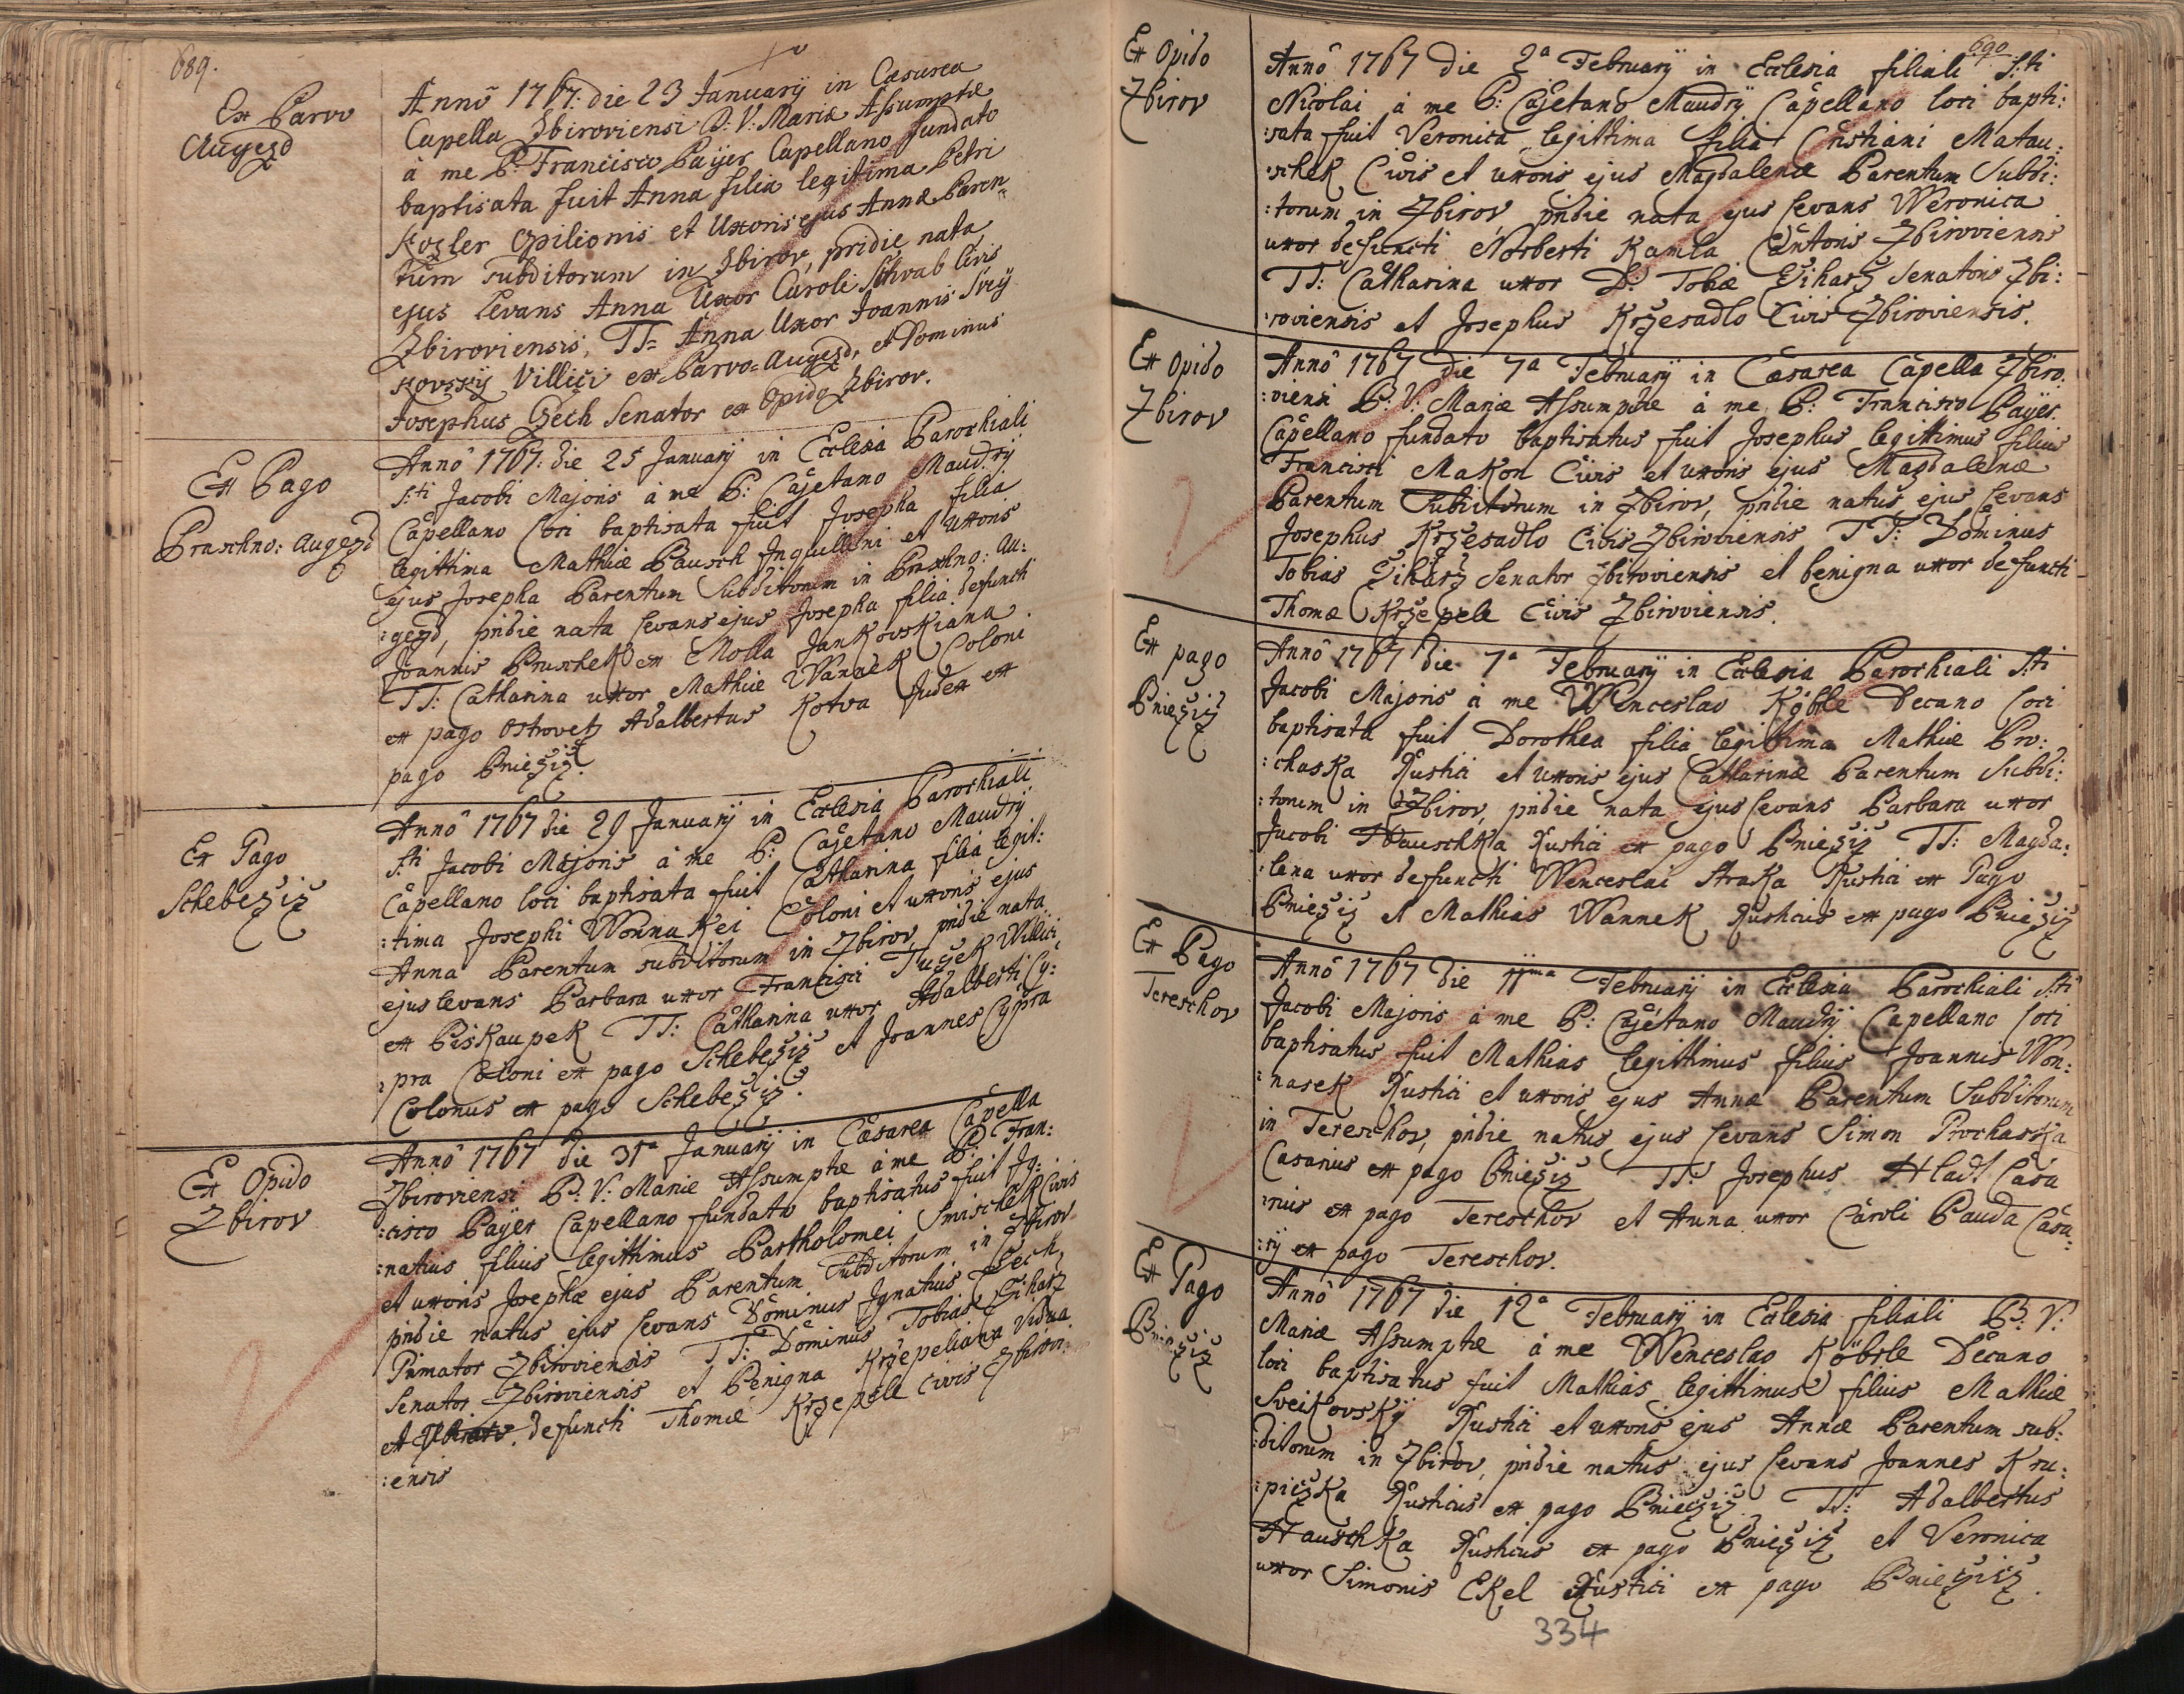 689.
Ex Parvo
Augezd
Anno 1767: die 23 Januarij in Cæsarea
Capella Zbiroviensi B: V: Mariæ Assumptæ
à me P: Francisco Paÿer Capellano fundato
baptisata fuit Anna filia legitima Petri
Kozler Opilionis et Uxoris ejus Annæ Paren=
tum subditorum in Zbirov, pridie nata,
ejus Levans Anna Uxor Caroli Schvab Civis
Zbiroviensis, TT= Anna Uxor Joannis Svij
kovskÿ Villici ex Parvo=Augezd, et Dominus
Josephus Zech Senator ex Opido Zbirov.
Ex Pago
Praschno: Augezd
Anno 1767: die 25 Januarij in Ecclesia Parochiali
S:ti Jacobi Majoris à me P: Cajetano Maudrÿ
Capellano loci baptisata fuit Josepha filia
legittima Mathiæ Pausch Inquillini et Uxoris
ejus Josepha Parentum Subditorum in Praschno: Au:
:gezd, pridie nata Levans ejus Josepha filia defuncti
Joannis Pruschek ex Molla Jankovskiana
TT: Catharina uxor Mathiæ Wanaek Coloni
ex pago Ostrovetz Adalbertus Kotva Judex ex
pago Pnieziz.
Ex Pago
Schebeziz
Anno 1767 die 29 Januarij in Ecclesia Parochiali
S:ti Jacobi Majoris à me P: Cajetano Maudrÿ
Capellano loci baptisata fuit Catharina filia legit:
:tima Josephi Wonnakei Coloni et uxoris ejus
Anna Parentum subditorum in Zbirov, pridie nata
ejus levans Barbara uxor Francisci Tuczek Willici
ex Piskaupek TT: Catharina uxor Adalberti Cy:
:pra Coloni ex pago Schebeziz et Joannes Cypra
Colonus ex pago Schebeziz.
Ex Opido
Zbirov
Anno 1767 die 31a Januarij in Cæsarea Capella
Zbiroviensi B: V: Mariæ Assumptæ à me P: Fran:
:cisco Paÿer Capellano fundato baptisatus fuit Ig:
:natius filius legittimus Bartholomei Smischek Civis
et uxoris Josephæ ejus Parentum Subditorum in Zbirov
pridie natus ejus levans Dominus Ignatius Zech,
Primator Zbiroviensis TT: Dominus Tobias Ziharz
Senator Zbiroviensis et Benigna Krzepeliana Vidua
defuncti Thomæ Krzepele Civis Zbirovi:
:ensis
690
Ex Opido
Zbirov
Anno 1767 die 2a Februarij in Ecclesia filiali S:ti
Nicolai à me P: Cajetano Maudrÿ Capellano loci bapti:
:sata fuit Veronica legittima filia Cristiani Matau:
:schek Civis et uxoris ejus Magdalenæ Parentum Subdi:
:torum in Zbirov pridie nata ejus levans Weronica
uxor defuncti Norberti Kamla Cantoris Zbiroviensis
TT: Catharina uxor D: Tobiæ Ziharz Senatoris Zbi:
:roviensis et Josephus Krzesadlo Civis Zbiroviensis.
Ex Opido
Zbirov
Anno 1767 die 7a Februarij in Cæsarea Capella Zbiro:
:viensi B: V: Mariæ Assumptæ à me P: Francisco Paÿer
Capellano fundato baptisatus fuit Josephus legittimus filius
Francisci Makon Civis et uxoris ejus Magdalenæ
Parentum Subditorum in Zbirov, pridie natus ejus levans
Josephus Krzesadlo Civis Zbiroviensis TT: Dominus
Tobias Ziharz Senator Zbiroviensis et benigna uxor defuncti
Thomæ Krzepele Civis Zbiroviensis.
Ex pago
Pnieziz
Anno 1767 die 7a Februarij in Ecclesia Parochiali S:ti
Jacobi Majoris à me Wenceslao Köble Decano loci
baptisata fuit Dorothea filia legittima Mathiæ Pro:
:chaska Rustici et uxoris ejus Catharinæ Parentum Subdi:
:torum in Zbirov, pridie nata ejus levans Barbara uxor
Jacobi Hauschka Rustici ex pago Pnieziz TT: Magda:
:lena uxor defuncti Wenceslai Straka Rustici ex Pago
Pnieziz et Mathias Wannek Rusticus ex pago Pnieziz
Ex Pago
Tereschov
Anno 1767 die 11ma Februarij in Ecclesia Parochiali S:ti
Jacobi Majoris à me P: Cajétano Maudrÿ Capellano loci
baptisatus fuit Mathias legittimus filius Joannis Won:
:nasek Rustici et uxoris ejus Annæ Parentum Subditorum
in Tereschov, pridie natus ejus levans Simon Prochaska
Casarius ex pago Pnieziz TT: Josephus Hladl Casa
:rius ex pago Tereschov et Anna uxor Caroli Pauda Casa:
:rij ex pago Tereschov.
Ex Pago
Pnieziz
Anno 1767 die 12a Februarij in Ecclesia filiali B: V:
Mariæ Assumptæ à me Wenceslao Köbrle Decano
loci baptisatus fuit Mathias legittimus filius Mathiæ
Sveikovskÿ Rustici et uxoris ejus Annæ Parentum sub:
:ditorum in Zbirov, pridie natus ejus levans Joannes Kru:
:piczka Rusticus ex pago Pnieziz. TT: Adalbertus
Hauschka Rusticus ex pago Pnieziz et Veronica
uxor Simonis Ekel Rustici ex pago Pnieziz.
334